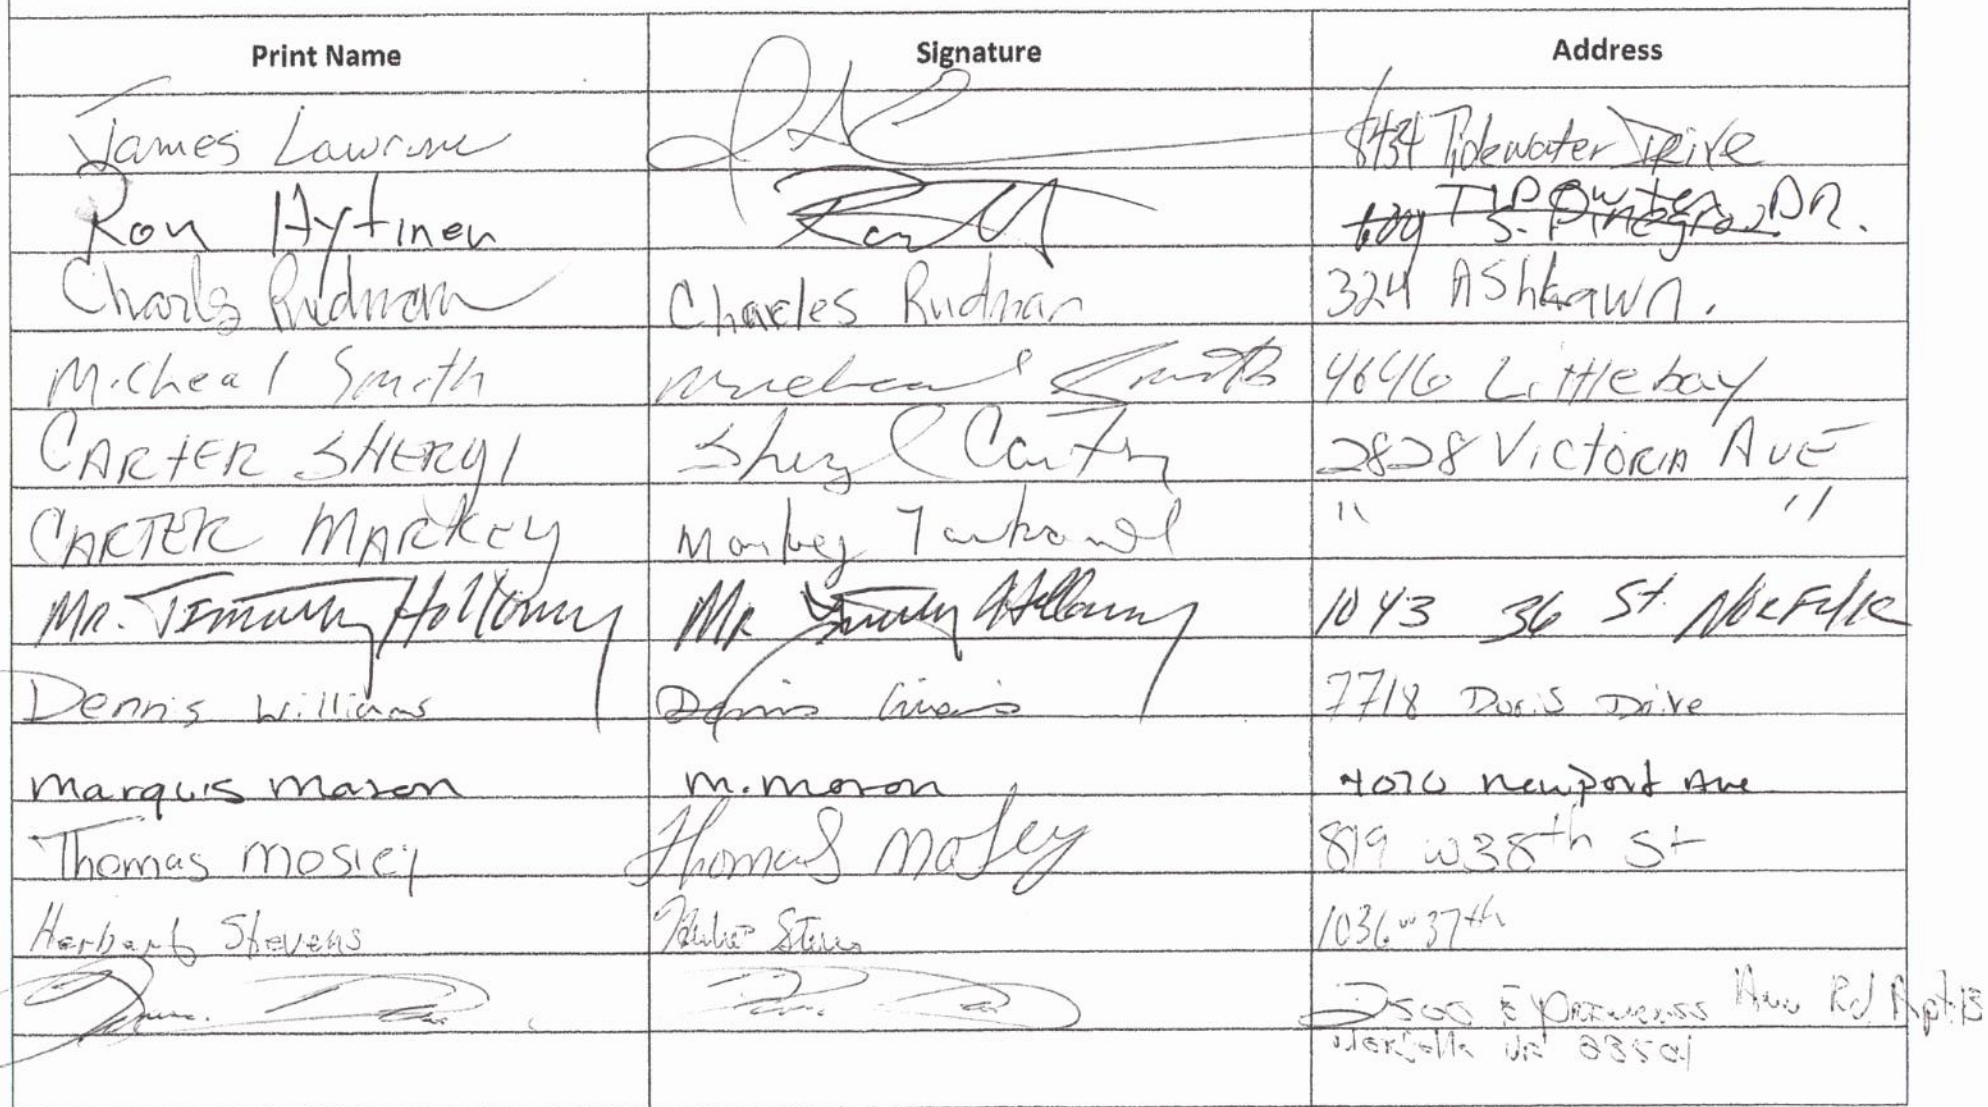 Print Name Signature Address
James Lawrence 8434 Tidewater Drive
Ron Hytinen TIDEwater DR.
Charles Rudman Charles Rudman 324 AShlawn.
Micheal Smith Micheal Smith 4646 Littlebay
CARTER SHERYl Sheryl Carter 2828 VICTORIA AVE
CARTER MARKEY Markey " "
MR. Timothy Holloway MR Timothy Holloway 1043 36 St. NORFOLK
Dennis Williams Dennis 7718 Doris Drive
Marquis Mason M. Mason 4070 Newport Ave
Thomas Mosley Thomas Mosley 819 w38th St
Herbert Stevens 1036 w 37th
2500 Rd Apt.B